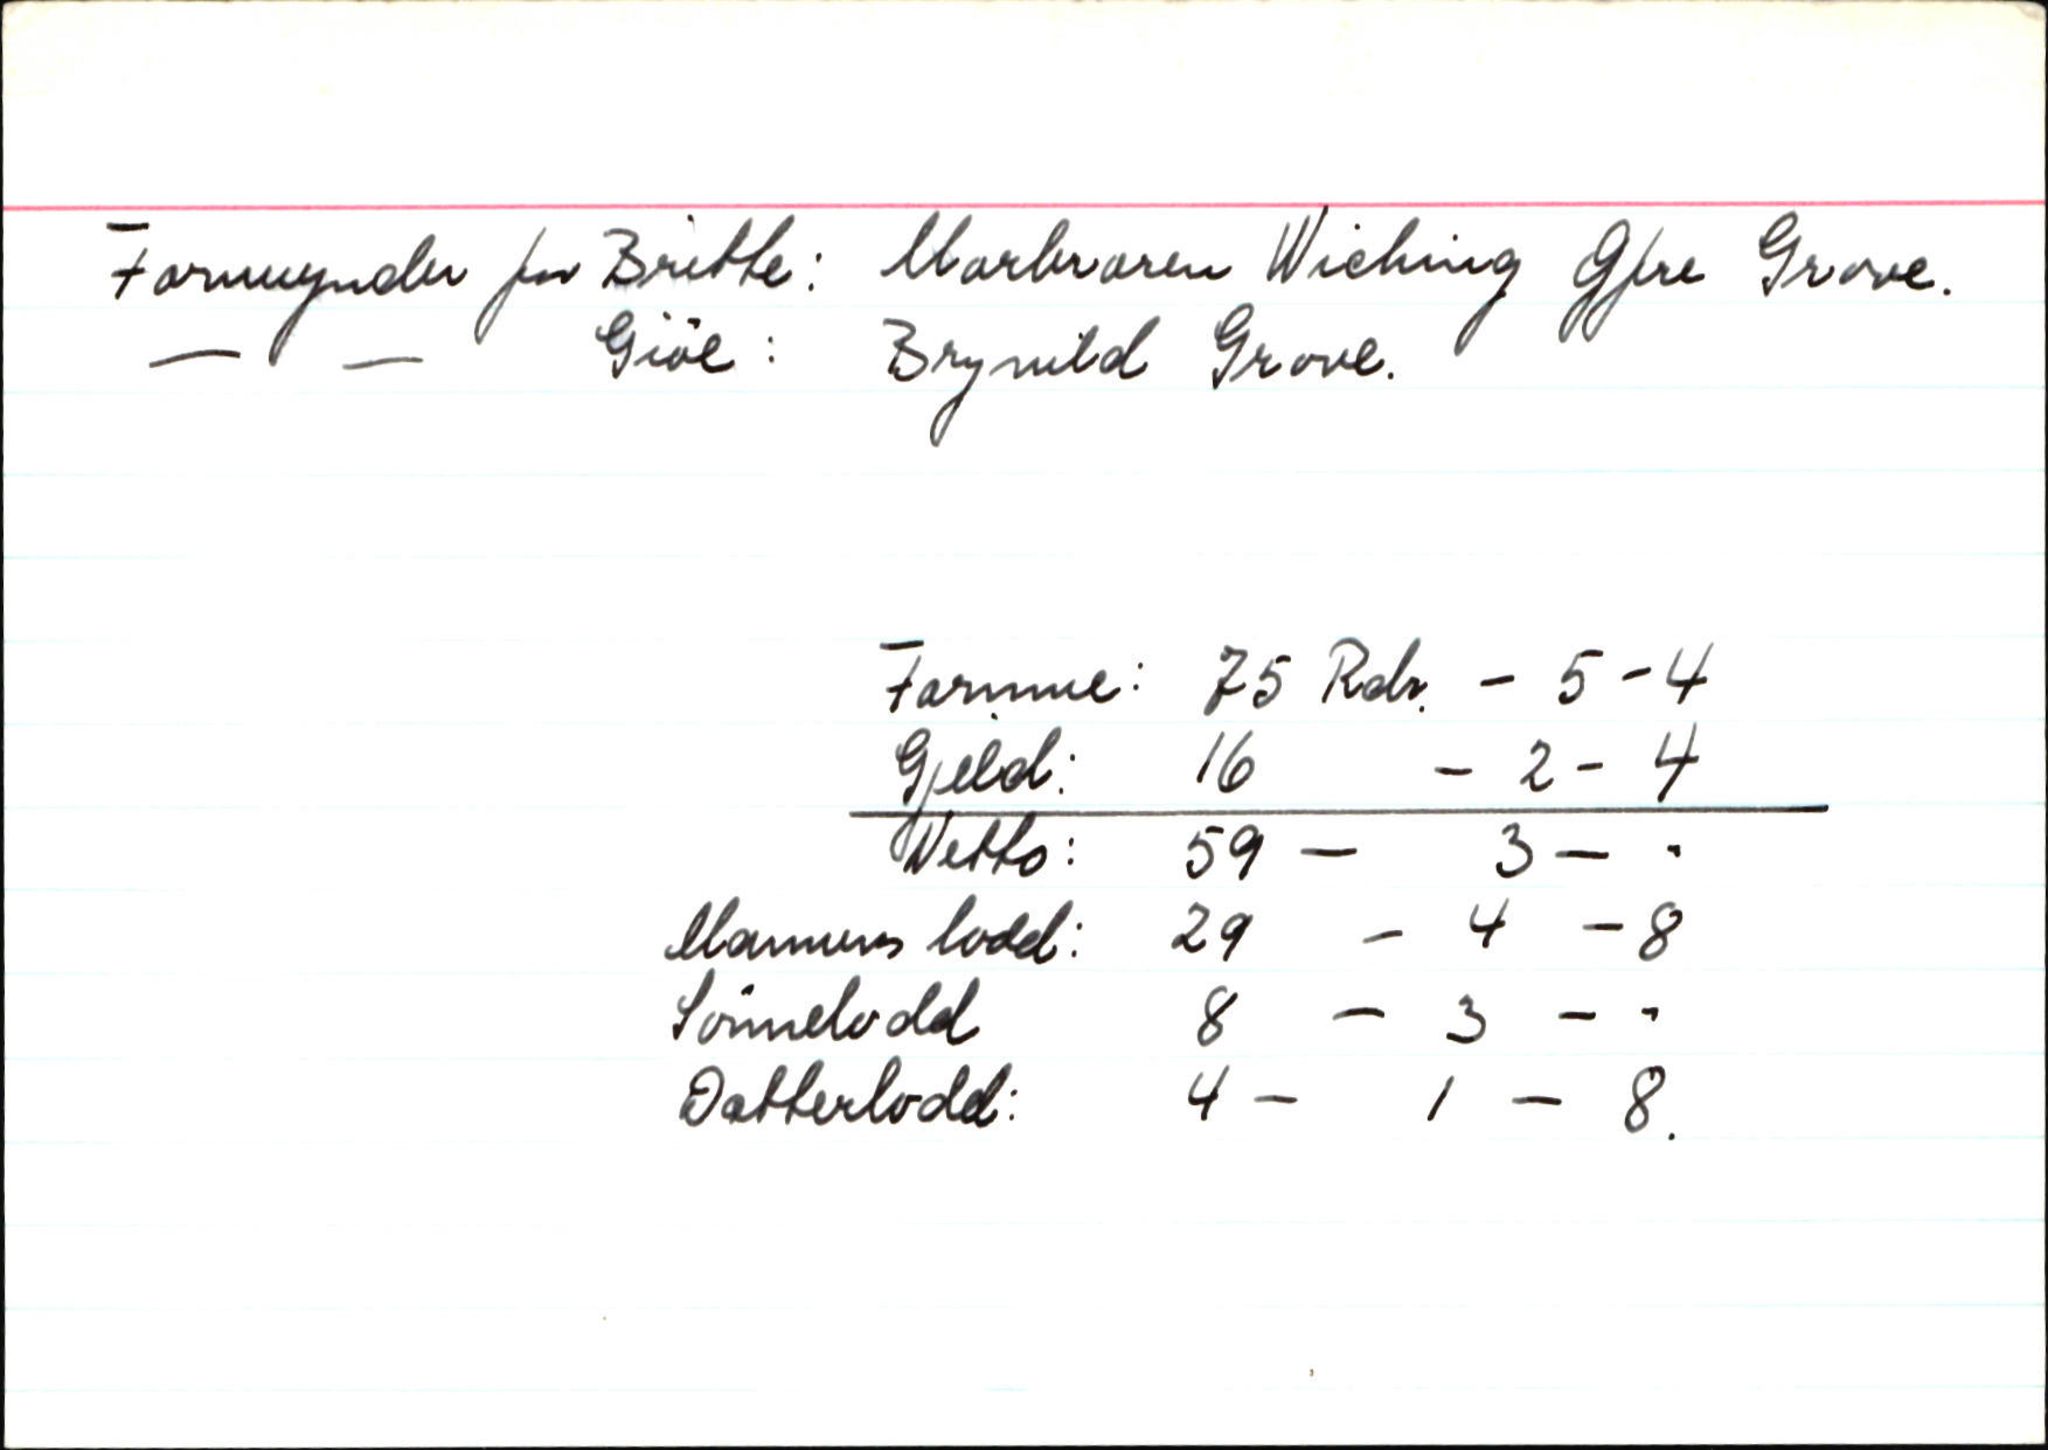 Formynder for Britte: Morbroren Wiching Gjøre Grove.
— — Giöe: Brynild Grove.
Formue: 75 Rdr. - 5 - 4
Gjeld: 16 - 2 - 4
Netto: 59 - 3 - ·
Mannens lodd: 29 - 4 - 8
Sönnelodd 8 - 3 - ·
Datterlodd: 4 - 1 - 8.